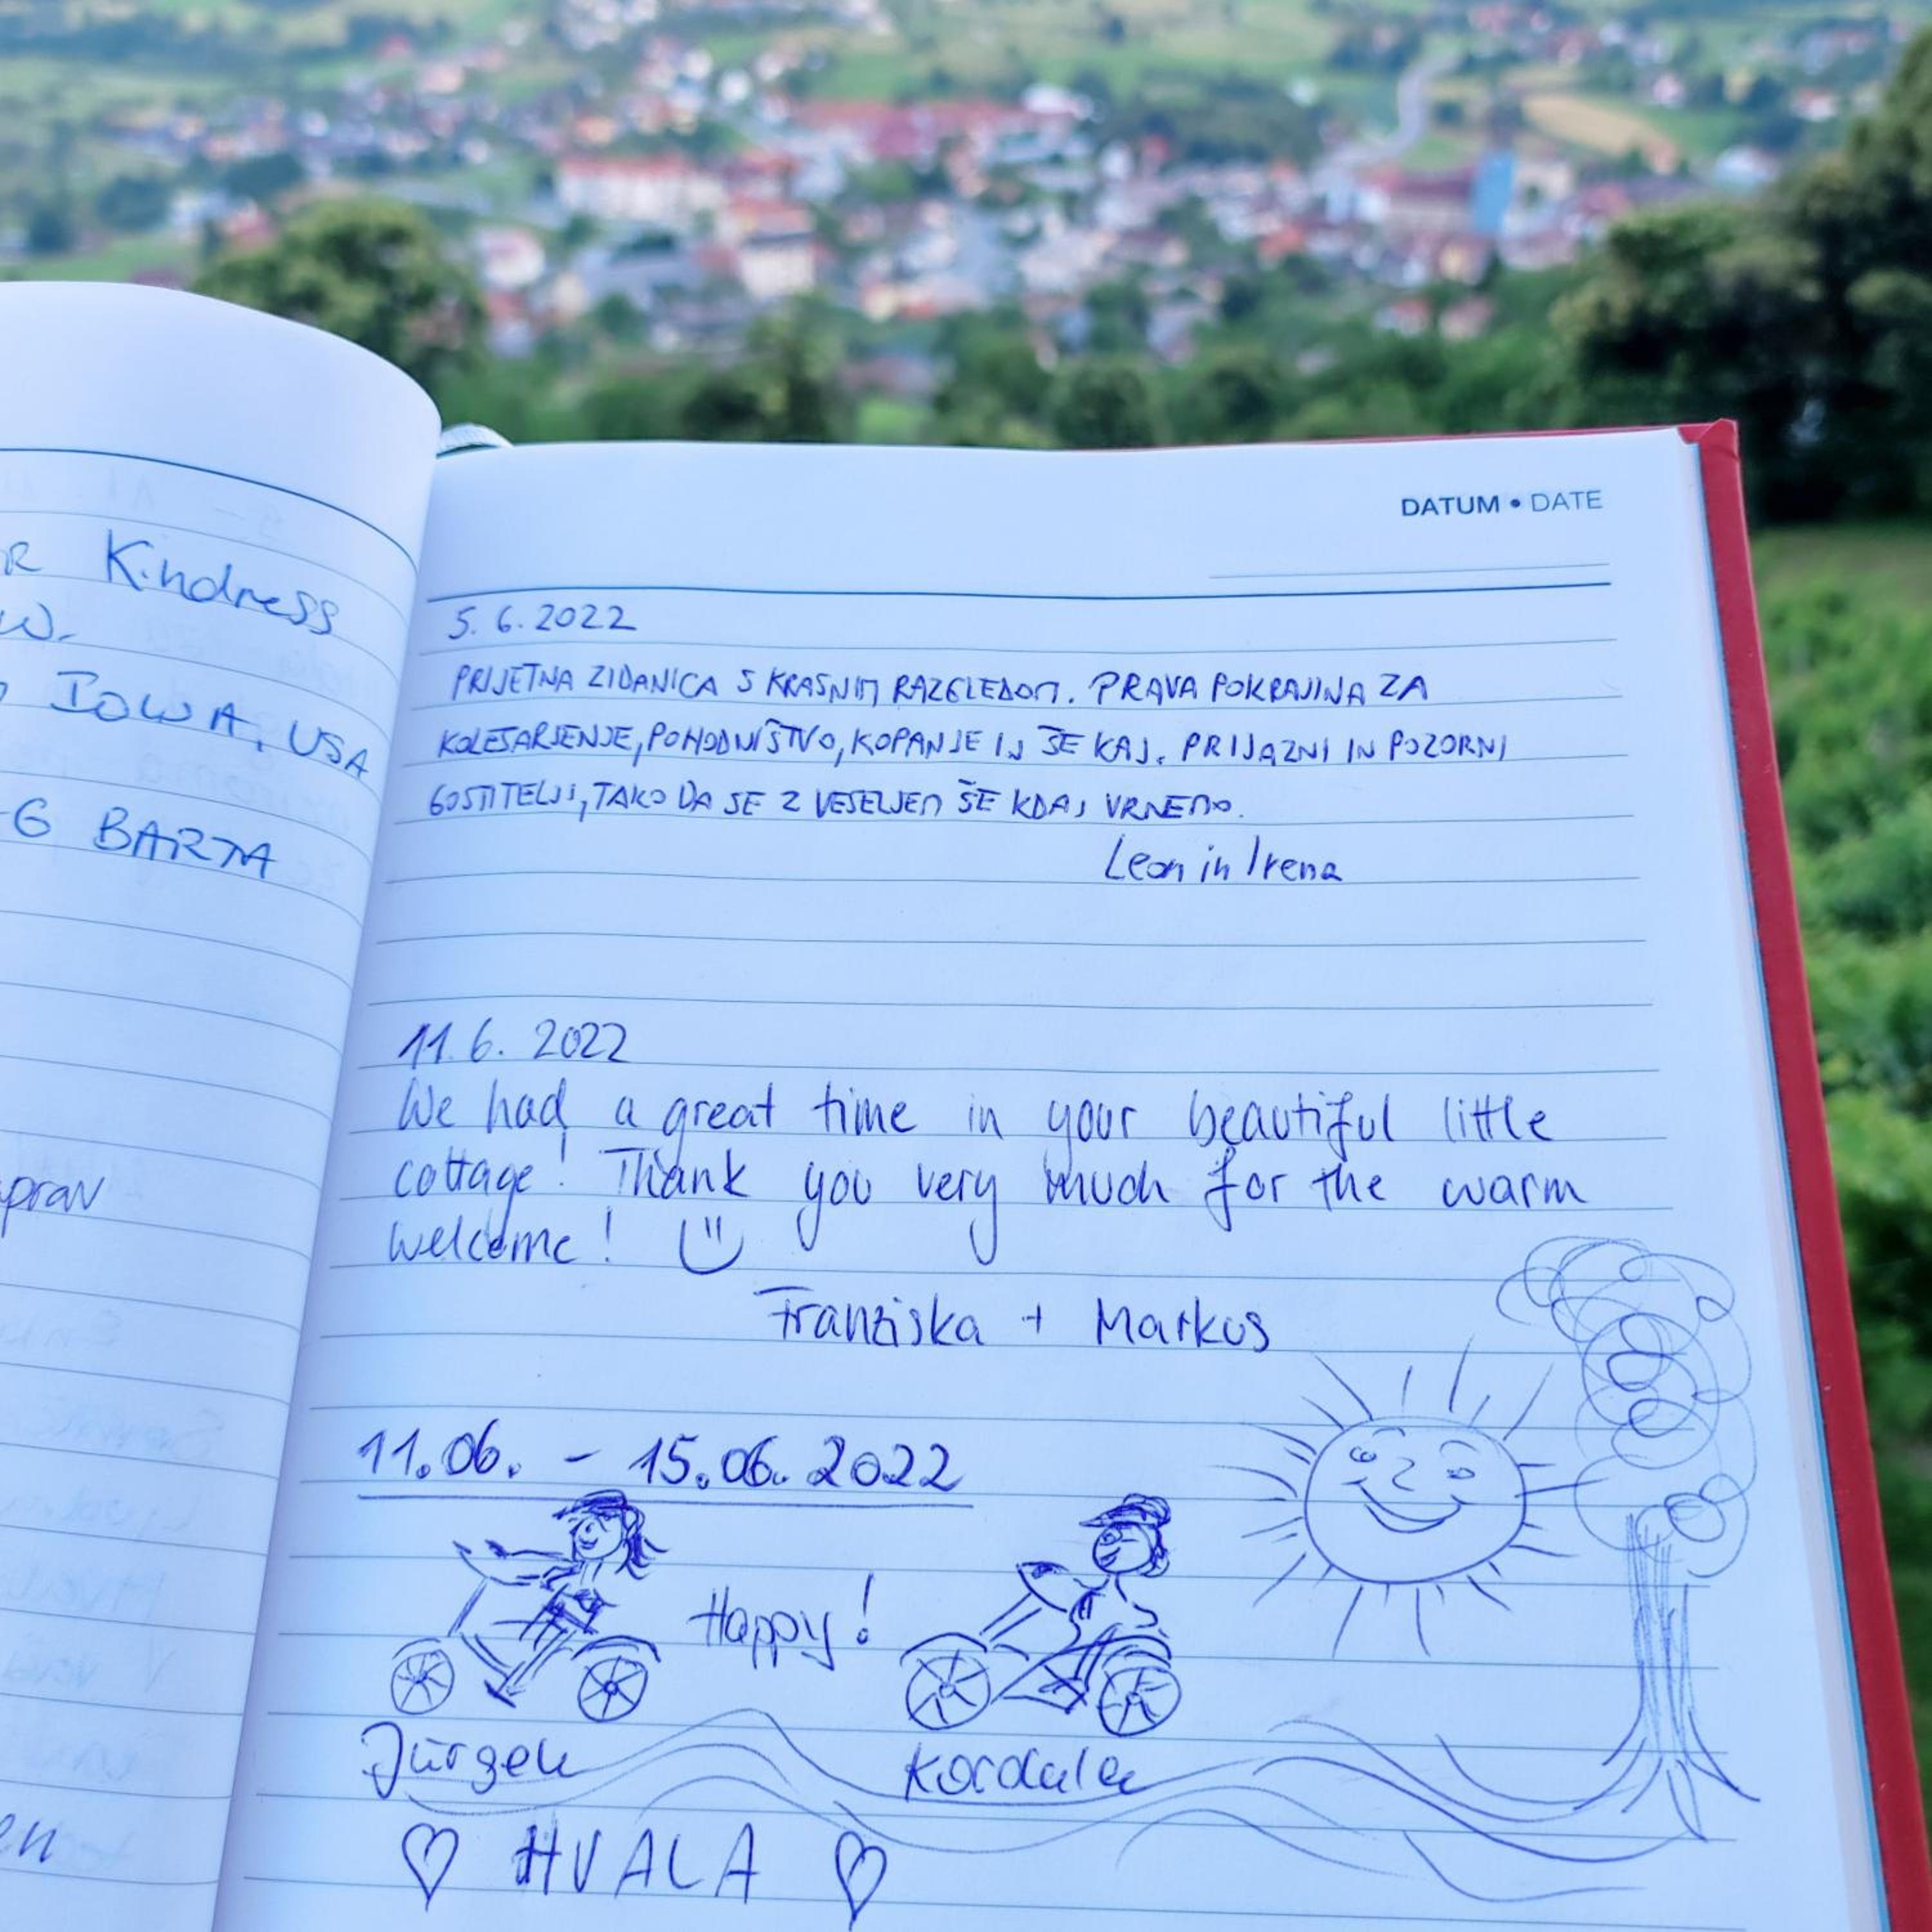 R Kindness
w.
IOWA, USA
G BARTA
prav
en
DATUM • DATE
5. 6. 2022
PRIJETNA ZIDANICA S KRASNIM RAZGLEDOM. PRAVA POKRAJINA ZA
KOLESARJENJE, POHODNIŠTVO, KOPANJE IN ŠE KAJ. PRIJAZNI IN POZORNI
GOSTITELJI, TAKO DA SE Z VESELJEM ŠE KDAJ VRNEMO.
Leon in Irena
11. 6. 2022
We had a great time in your beautiful little
cottage! Thank you very much for the warm
welcome!
Franziska + Markus
11.06. - 15.06.2022
Happy!
Jürgen Kordula
♡ HVALA ♡